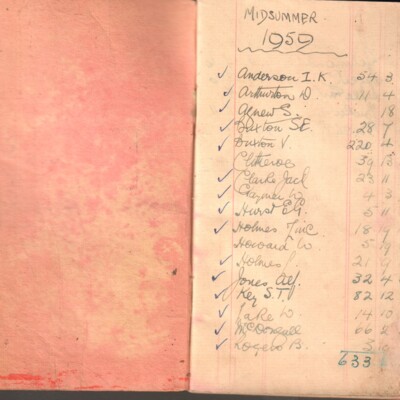 MIDSUMMER
1959
✓ Anderson I.K. 54 3
✓ Arthurton D. 11 4
✓ Agnew S. 18
✓ Buxton S.E. 28 7
✓ Buxton V. 220 4
Clitheroe 39 13
Clarke Jack 23 11
✓ W. 4 3
✓ Hurst E.G. 5 11
✓ Holmes 18
Howard W. 5
✓ Holmes J. 21
✓ Jones Alf. 32 4
✓ Key S.T. 82 12
✓ Lake W. 14 10
✓ McDougall 66 2
✓ Rogers B. 3
633